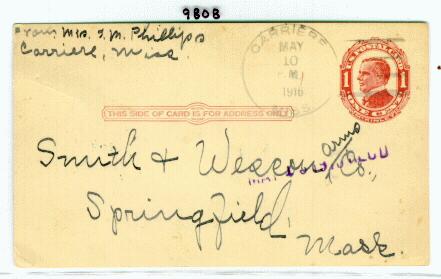 9808
From Mrs. T. M. Phillips
Carriere, Miss.
CARRIERE
MAY
10
M.
1916
MISS.
U.S. POSTAL CARD
1 1
ONE CENT
McKINLEY
THIS SIDE OF CARD IS FOR ADDRESS ONLY
Smith & Wesson arms Co.,
Springfield,
Mass.